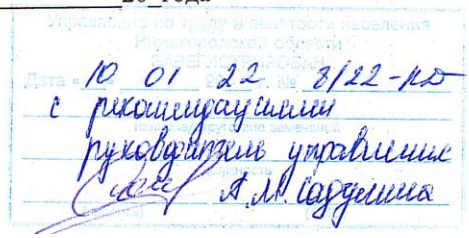 20 года
Управление по труду и занятости населения
Нижегородской области
ЗАРЕГИСТРИРОВАН
Дата « 10 01 22 г. № 8/22-КД
с рекомендациями
руководитель управления
А.М. Садулина